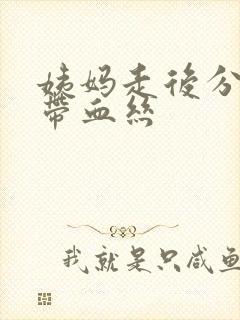 姨妈走後分
帶血絲
我就是只咸鱼